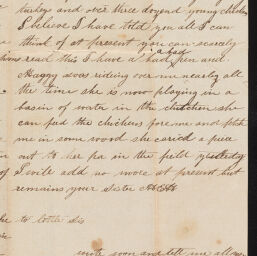 turkeys and over three dozend young chickens
I believe I have told you all I can
think of at present you can scarcely
read this I have a bad pen and
a bad
Maggy siver riding over me nearly all
the time she is now playing in a
basin of water in the citchen she
can fed the chickens fore me and
me in some wood she caried a piece
out to her pa in the field yesterdy
I will add no more at present but
remains your sister
to little sis
write soon and tell me all